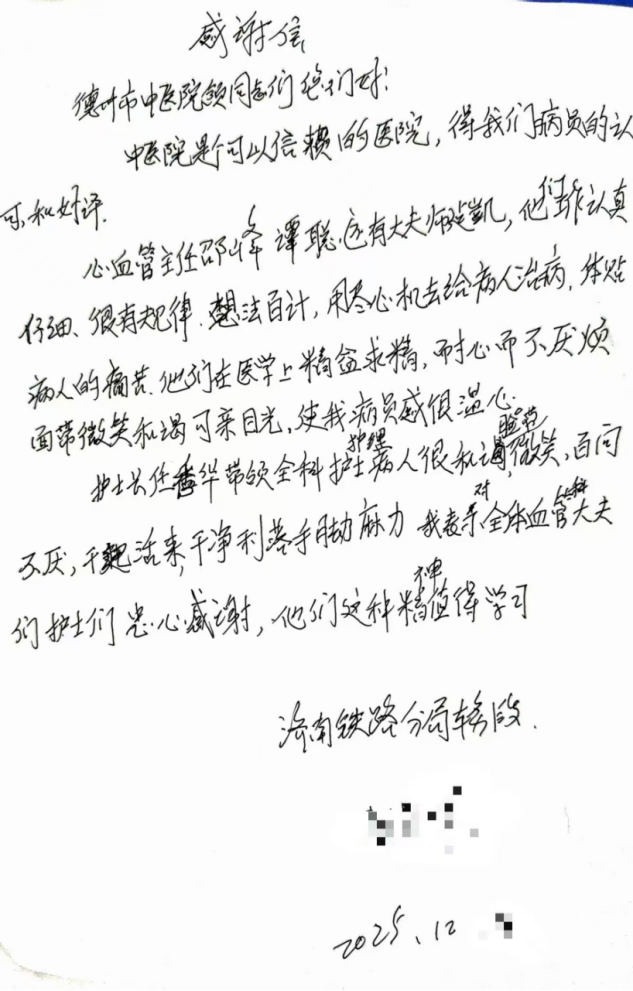 感谢信
德州市中医院领同志们您们好!
中医院是可以信赖的医院,得我们病员的认
可,和好评.
心血管主任邵峰 谭聪还有大夫师凯,他们工作认真
仔细、很有规律.想法百计,用尽心机去给病人治病.体贴
病人的痛苦.他们在医学上精益求精,耐心而不厌烦
面带微笑和谒可亲目光,使我病员感很温心
护士长任香华带领全科护士护理病人很和谒脸范微笑,百问
不厌,干起活来,干净利落手脚麻力 我表示对全体血管科大夫
们护士们忠心感谢,他们这种精神值得学习
济南铁路分局车务段.
2025.12